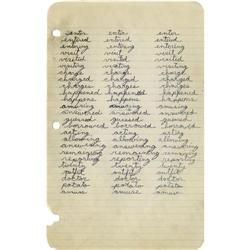 enter enter enter
entered entered entered
entering entering entering
visit visit visit
visited visited visited
visiting visiting visiting
charge charge charge
charged charged charged
charges charges charges
happened happened happened
happens happens happens
amusing amusing amusing
answered answered answered
guessed guessed guessed
borrowed borrowed borrowed
acting acting acting
allowing allowing allowing
answering answering answering
remaining remaining remaining
reporting reporting reporting
twenty twenty twenty
outfit outfit outfit
doktor doktor doktor
potato potato potato
amuse amuse amuse